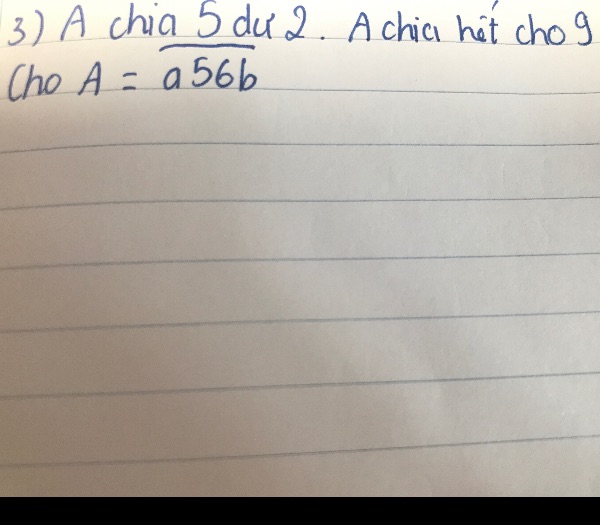 3) A chia 5 dư 2. A chia hết cho 9
Cho A = a56b